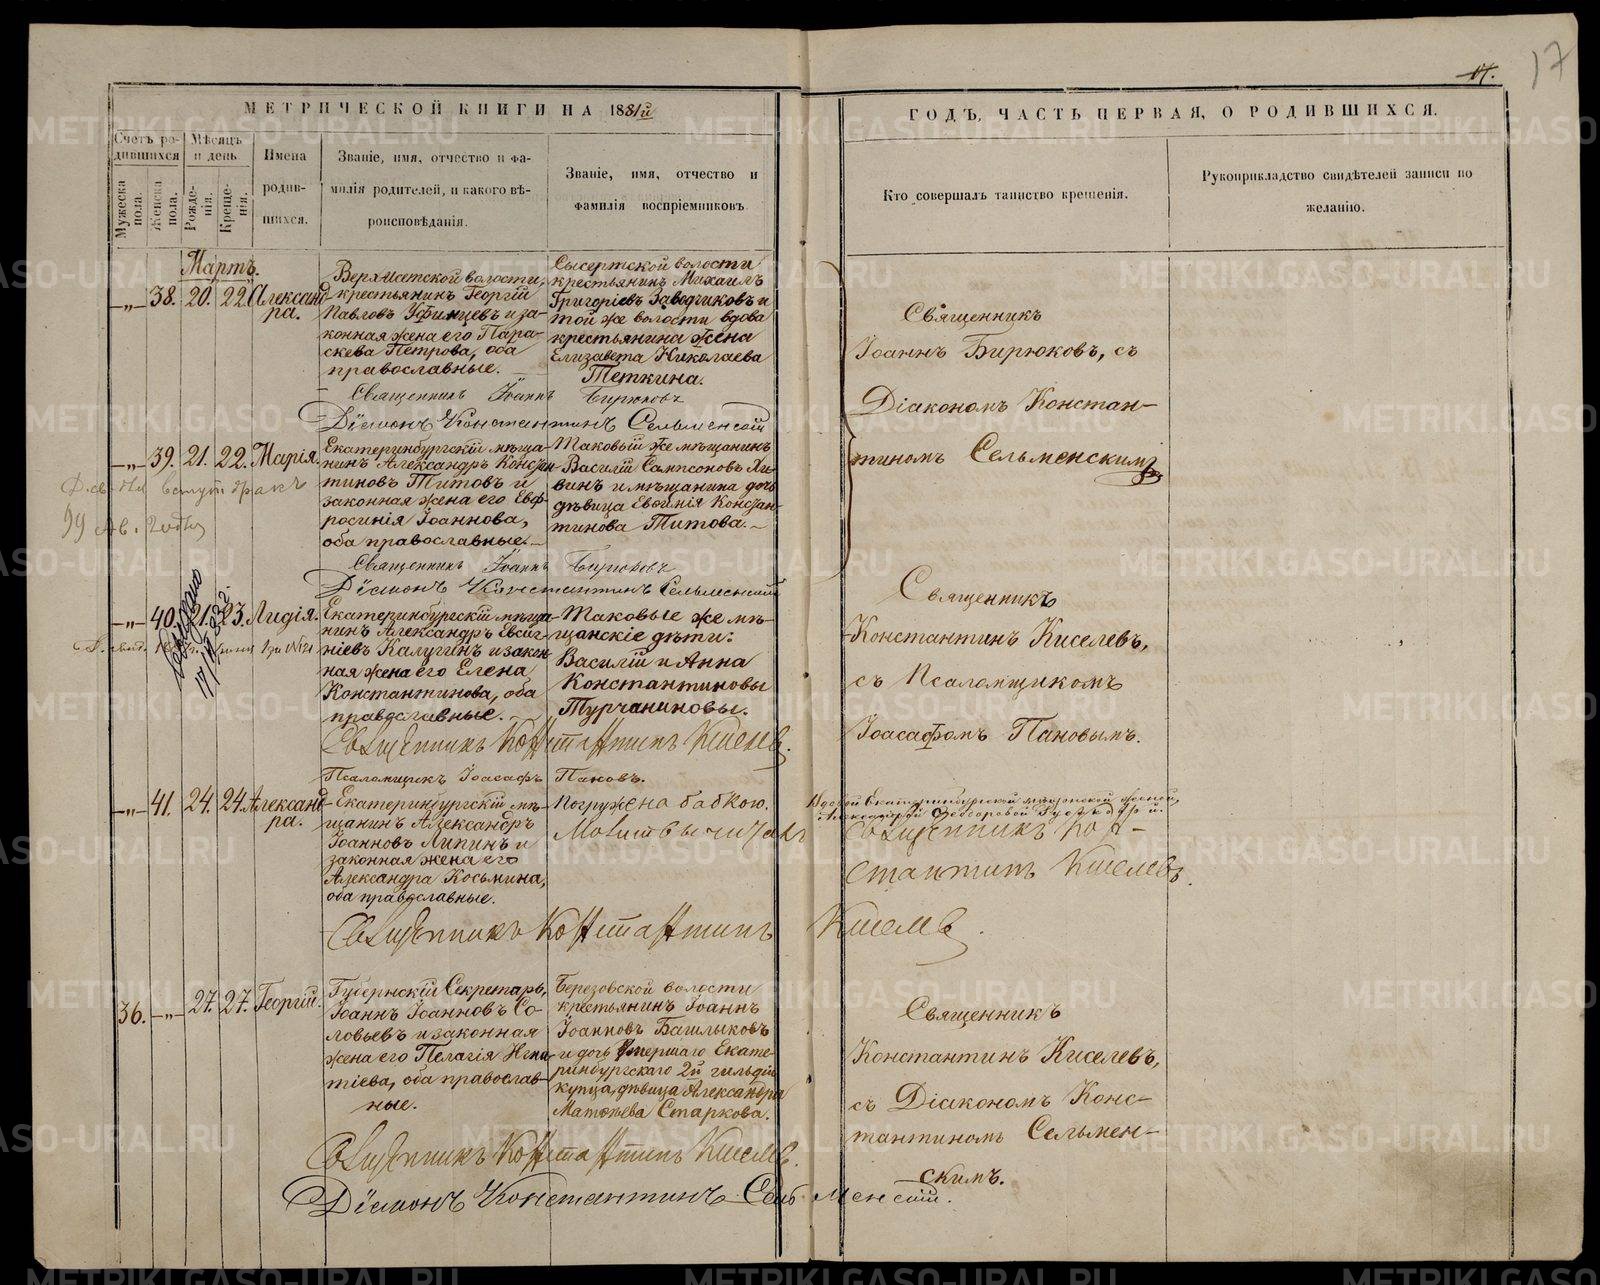 17
17.
МЕТРИЧЕСКОЙ КНИГИ НА 1881й
ГОДЪ, ЧАСТЬ ПЕРВАЯ, О РОДИВШИХСЯ.
Счетъ родившихся
Мужеска пола.
Женска пола.
Мѣсяцъ и день
Рожденія.
Крещенія.
Имена
родив-
шихся.
Званіе, имя, отчество и фа-
милія родителей, и какого вѣ-
роисповѣданія.
Званіе, имя, отчество и
фамилія воспріемниковъ.
Кто совершалъ таинство крещенія.
Рукоприкладство свидѣтелей записи по
желанію.
Мартъ.
-„- 38. 20. 22. Александ-
ра.
Верхисетской волости,
крестьянинъ Георгій
Павловъ Уфинцевъ и за-
конная жена его Пара-
скева Петрова, оба
православные.
Сысертской волости
крестьянинъ Михаилъ
Григоріевъ Заводчиковъ и
той же волости вдова
крестьянина жена
Елизавета Николаева
Теткина.
Священникъ
Іоаннъ Бирюковъ, съ
Діакономъ Констан-
тиномъ Сельменскимъ
Священникъ Іоаннъ Бирюковъ
Діаконъ Константинъ Сельменскій
-„- 39. 21. 22. Марія.
Екатеринбургскій мѣща-
нинъ Александръ Констан-
тиновъ Титовъ и
законная жена его Евф-
росинія Іоаннова,
оба православные.
Таковый же мѣщанинъ
Василій Сампсоновъ Хи-
винъ и мѣщанина дочь
дѣвица Евѳимія Констан-
тинова Титова.
Священникъ Іоаннъ Бирюковъ
Діаконъ Константинъ Сельменскій
-„- 40. 21. 23. Лидія.
Екатеринбургскій мѣща-
нинъ Александръ Евсиг-
ніевъ Калугинъ и закон-
ная жена его Елена
Константинова, оба
православные.
Таковые же мѣ-
щанскіе дѣти:
Василій и Анна
Константиновы
Турчаниновы.
Священникъ
Константинъ Киселевъ,
съ Псаломщикомъ
Іоасафомъ Пановымъ.
Священникъ Константинъ Киселевъ.
Псаломщикъ Іоасафъ Пановъ.
-„- 41. 24. 24. Александ-
ра.
Екатеринбургскій мѣ-
щанинъ Александръ
Іоанновъ Липинъ и
законная жена его
Александра Косьмина,
оба православные.
Погружена бабкою.
Молитвы читалъ
Священникъ Кон-
стантинъ Киселевъ.
Священникъ Константинъ Киселевъ.
36. -„- 27. 27. Георгій.
Губернскій Секретарь,
Іоаннъ Іоанновъ Со-
ловьевъ и законная
жена его Пелагія Игна-
тіева, оба православ-
ные.
Березовской волости
крестьянинъ Іоаннъ
Іоанновъ Башлыковъ
и дочь умершаго Екате-
ринбургскаго 2й гильдіи
купца, дѣвица Александра
Матвѣева Старкова.
Священникъ
Константинъ Киселевъ,
съ Діакономъ Конс-
тантиномъ Сельмен-
скимъ.
Священникъ Константинъ Киселевъ.
Діаконъ Константинъ Сельменскій.
METRIKI.GASO-URAL.RU